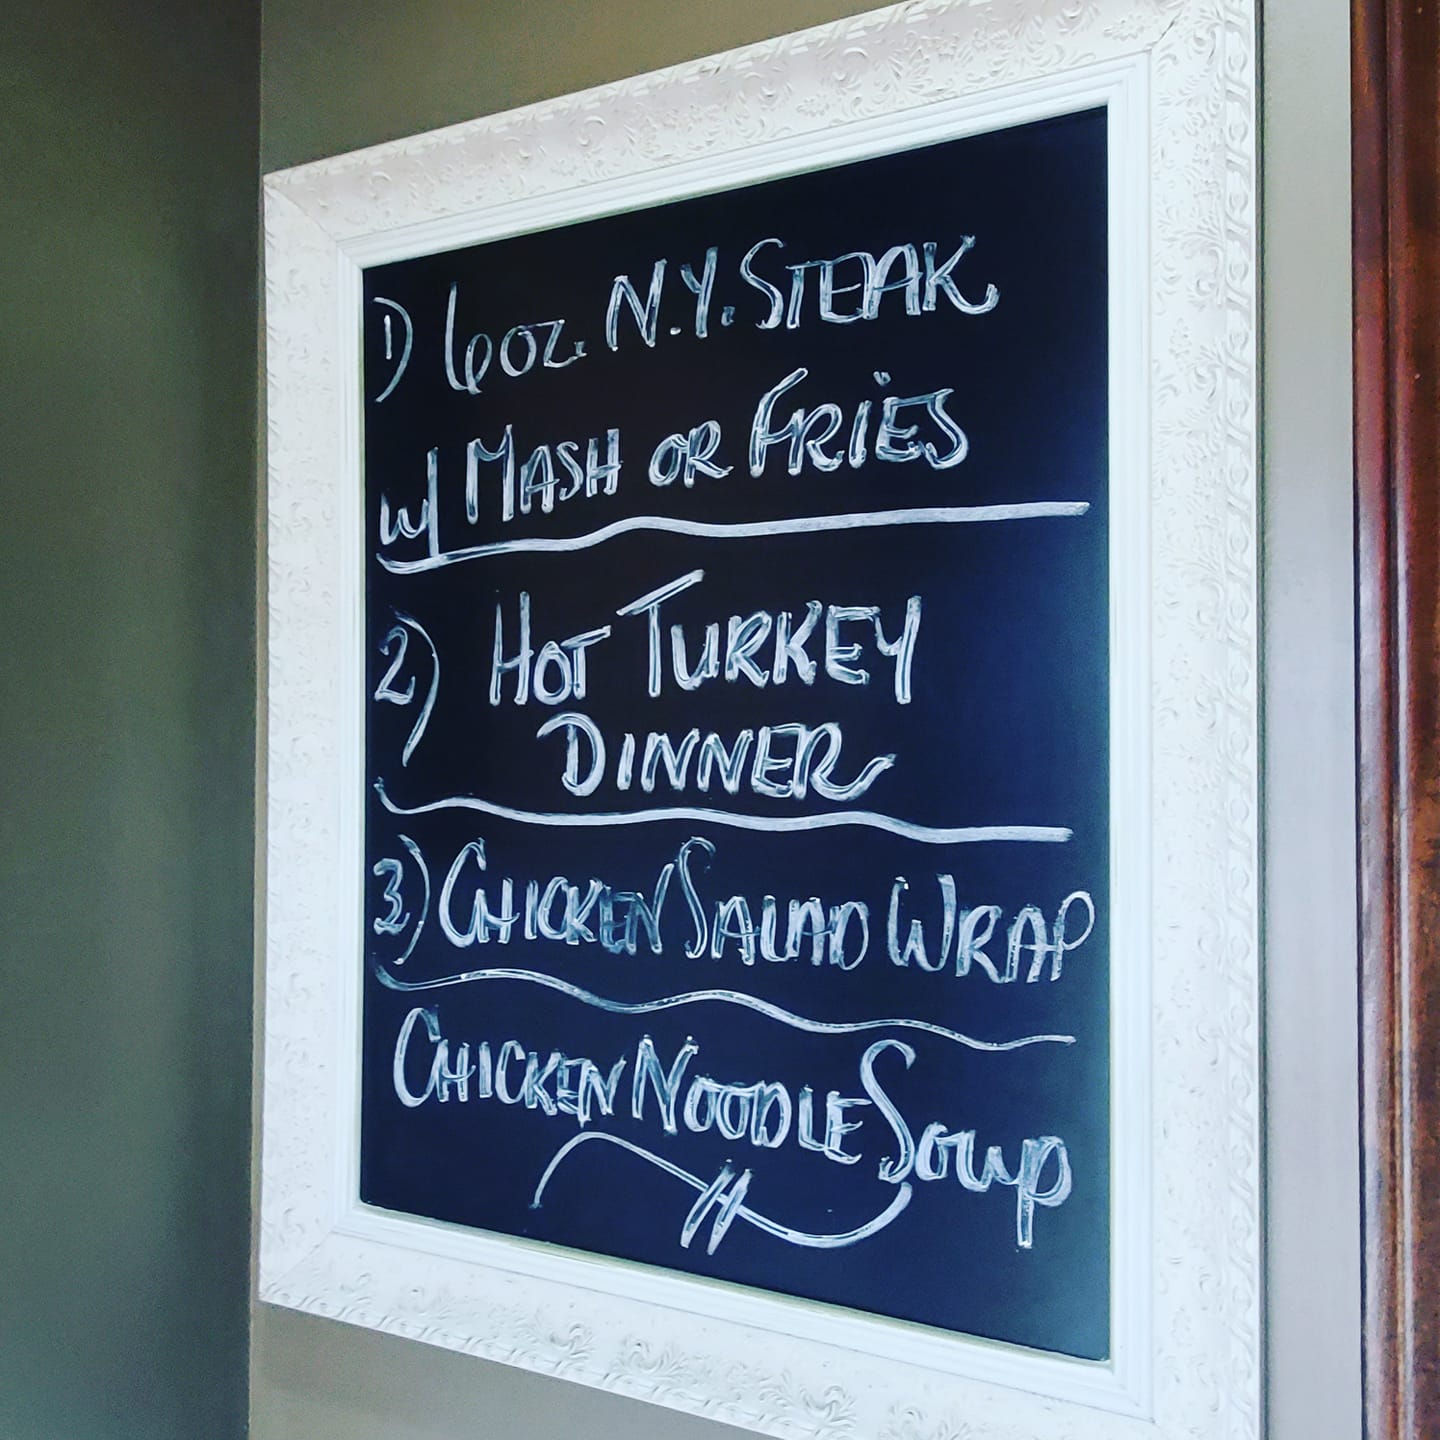 1) 6oz. N.Y. STEAK
w/ MASH OR FRIES
2) HOT TURKEY
DINNER
3) CHICKEN SALAD WRAP
CHICKEN NOODLE SOUP